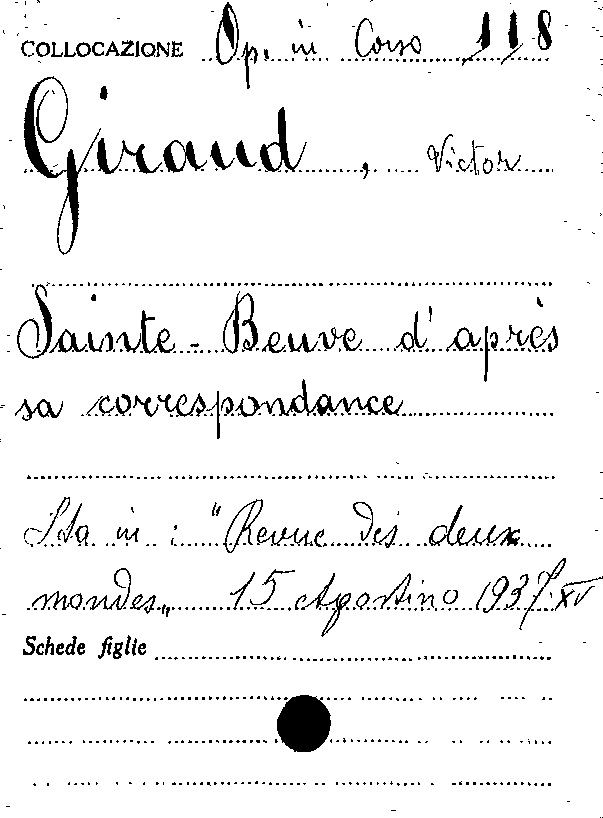 COLLOCAZIONE Op. in Corso 118
Giraud, Victor
Sainte-Beuve d'après
sa correspondance
Sta in: "Revue des deux
mondes„ 15 Agostino 1937. XV
Schede figlie